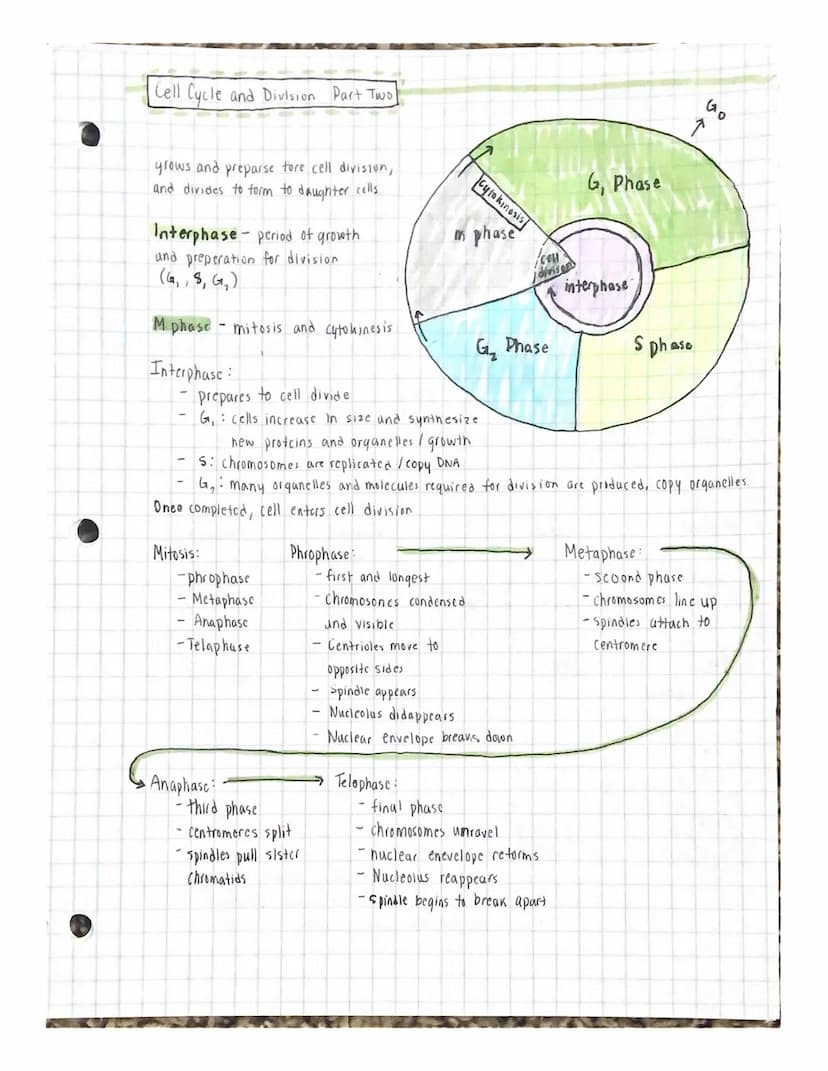 Cell Cycle and Division Part Two
G0
grows and preparse fore cell division,
and divides to form to daughter cells
Interphase - period of growth
and preperation for division
(G1, S, G2)
M phase - mitosis and cytokinesis
G1 Phase
cytokinesis
m phase
cell
division
interphase
G2 Phase
S phase
Interphase:
- prepares to cell divide
- G1: cells increase in size and synthesize
new proteins and organelles / growth
- S: chromosomes are replicated / copy DNA
- G2: many organelles and molecules required for division are produced, copy organelles.
Once completed, cell enters cell division
Mitosis:
- phrophase
- Metaphase
- Anaphase
- Telaphase
Phrophase:
- first and longest
- Chromosones condensed
and visible
- Centrioles move to
opposite sides
- Spindle appears
- Nucleolus didappears
- Nuclear envelope breaks down
Metaphase:
- second phase
- chromosomes line up
- spindles attach to
centromere
Anaphase:
- third phase
- centromeres split
- spindles pull sister
chromatids
Telophase:
- final phase
- chromosomes unravel
- nuclear enevelope reforms
- Nucleolus reappears
- Spindle begins to break apart